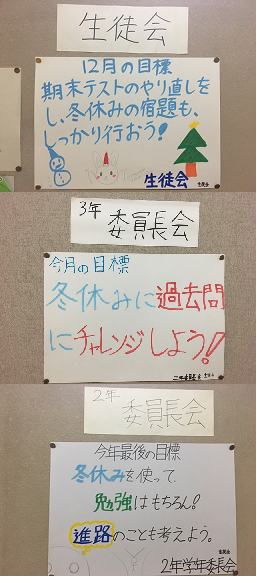 生徒会
12月の目標
期末テストのやり直しを
し、冬休みの宿題も、
しっかり行おう!
生徒会
3年 委員長会
今月の目標
冬休みに過去問
にチャレンジしよう!
2年 委員長会
今年最後の目標
冬休みを使って
勉強はもちろん!
進路のことも考えよう。
2年学年委員長会